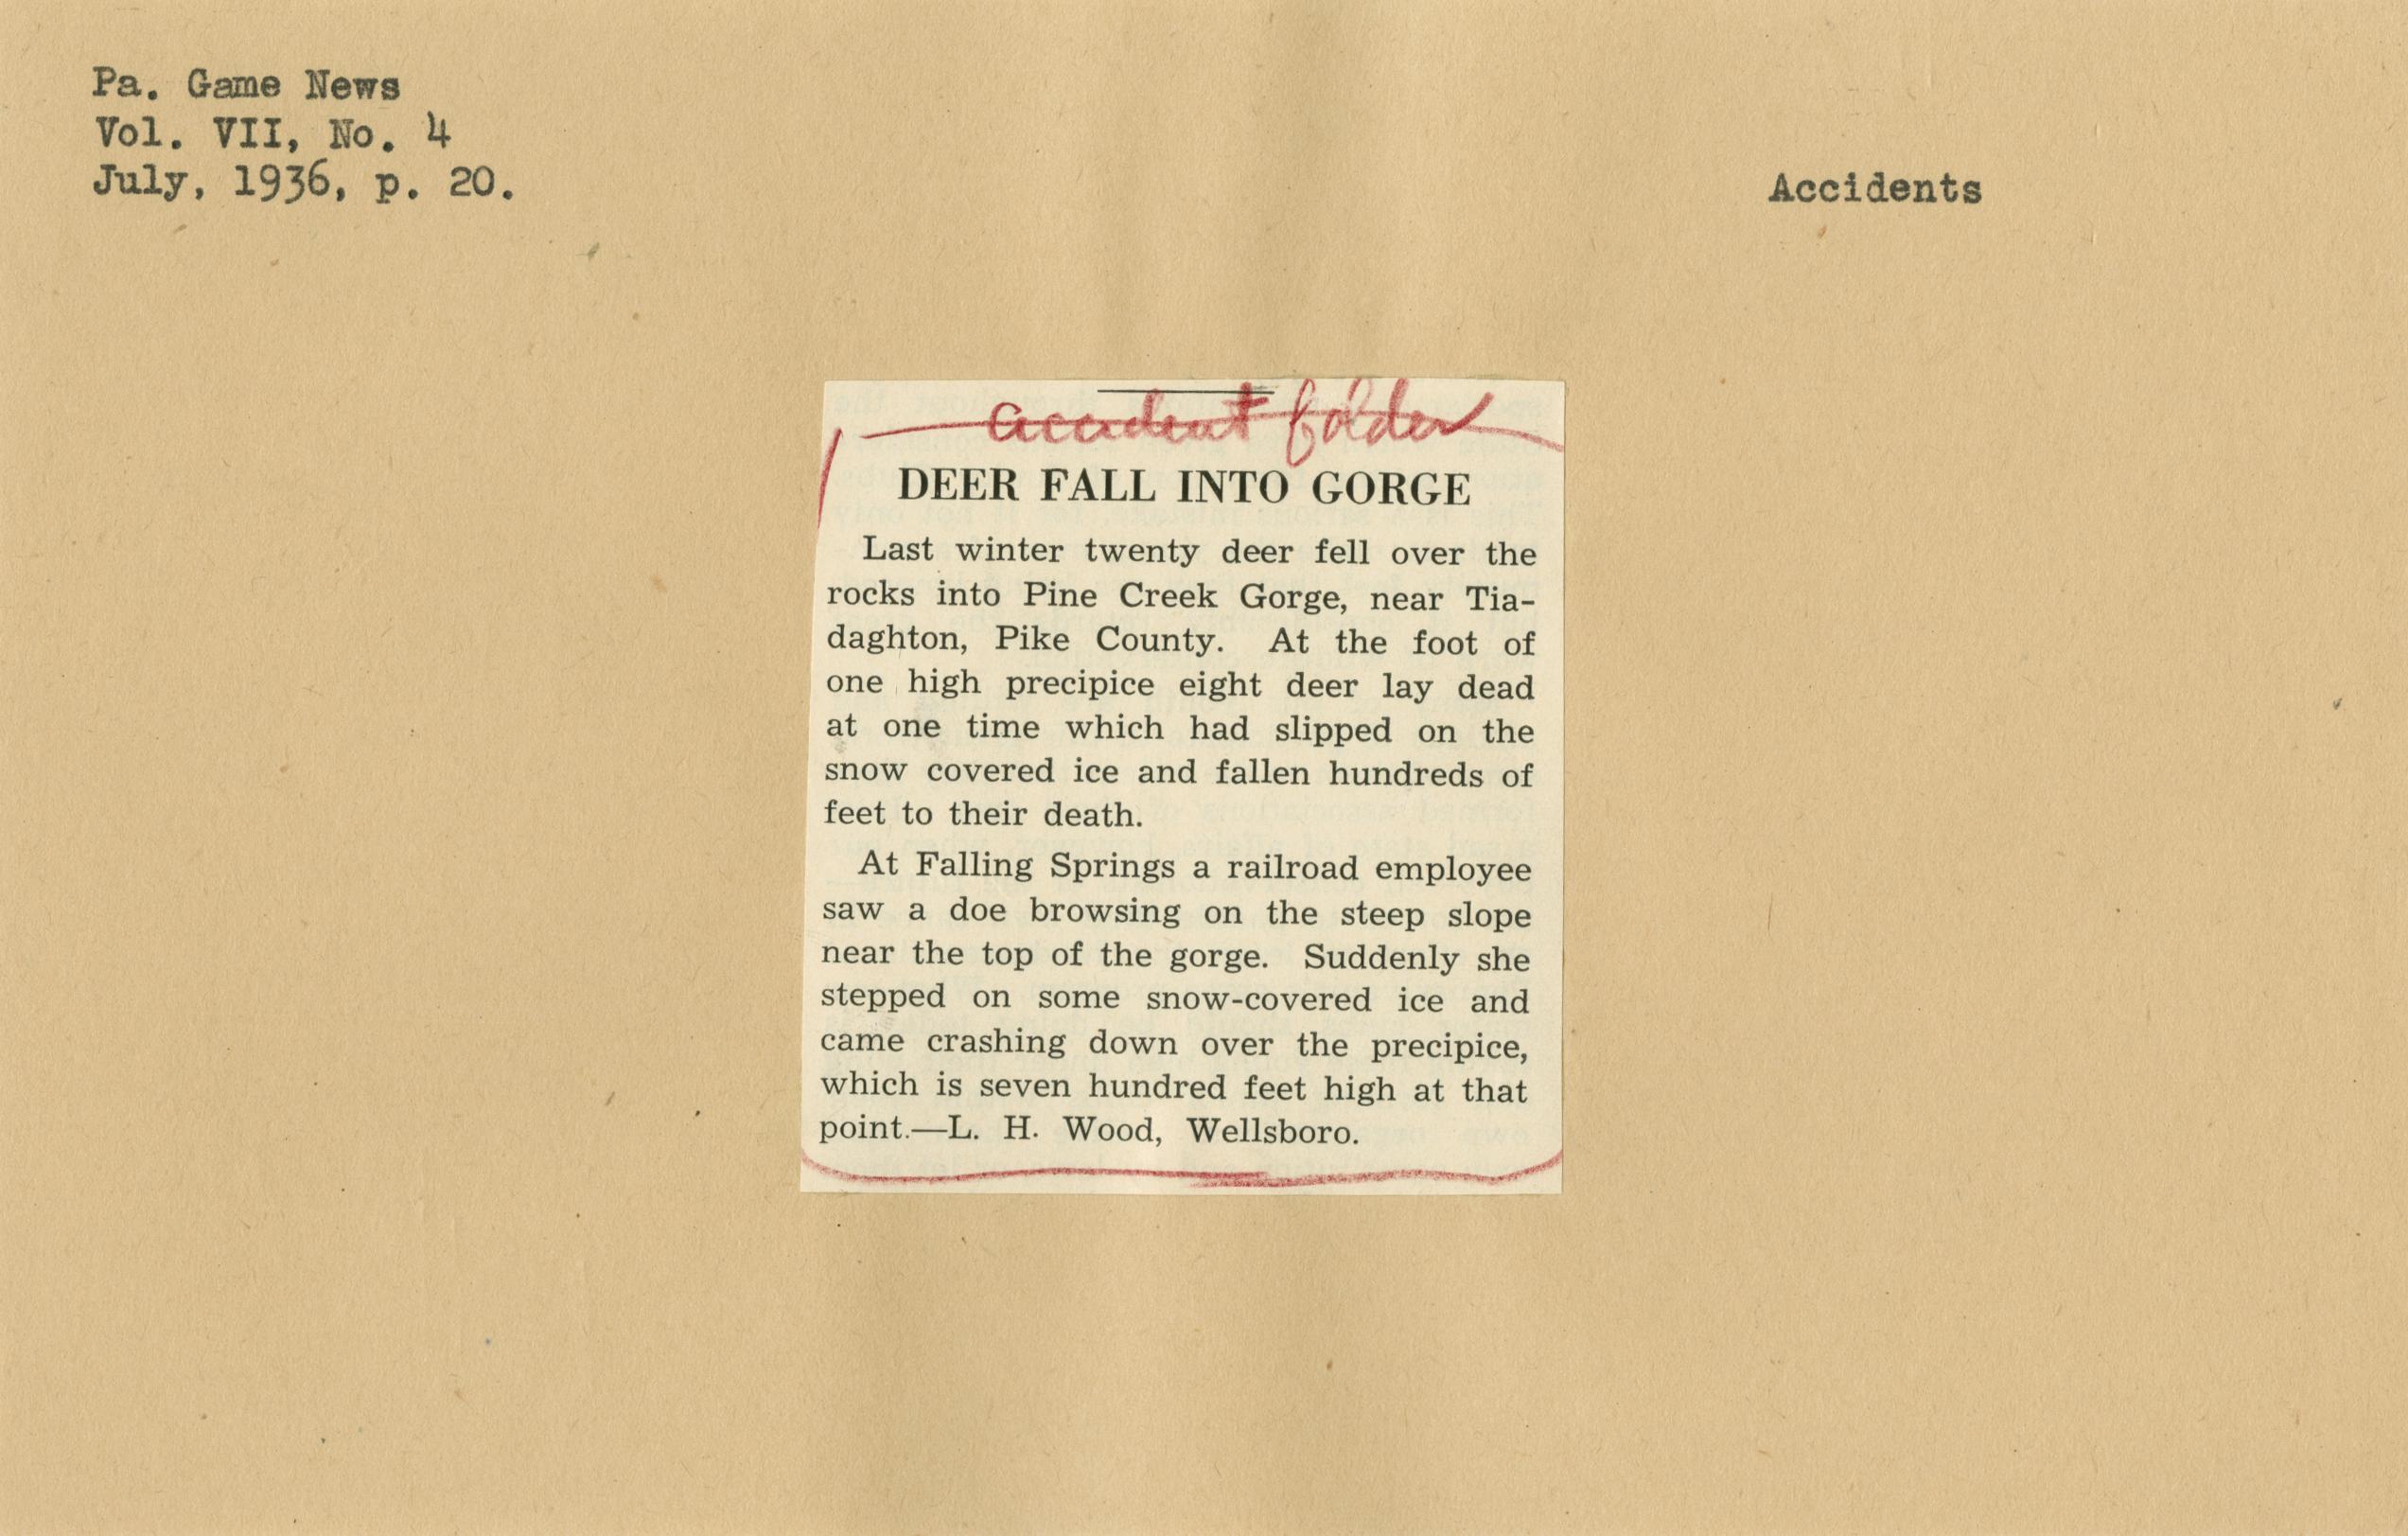 Pa. Game News
Vol. VII, No. 4
July, 1936, p. 20.
Accidents
accident folder
DEER FALL INTO GORGE
Last winter twenty deer fell over the
rocks into Pine Creek Gorge, near Tia-
daghton, Pike County. At the foot of
one high precipice eight deer lay dead
at one time which had slipped on the
snow covered ice and fallen hundreds of
feet to their death.
At Falling Springs a railroad employee
saw a doe browsing on the steep slope
near the top of the gorge. Suddenly she
stepped on some snow-covered ice and
came crashing down over the precipice,
which is seven hundred feet high at that
point.—L. H. Wood, Wellsboro.